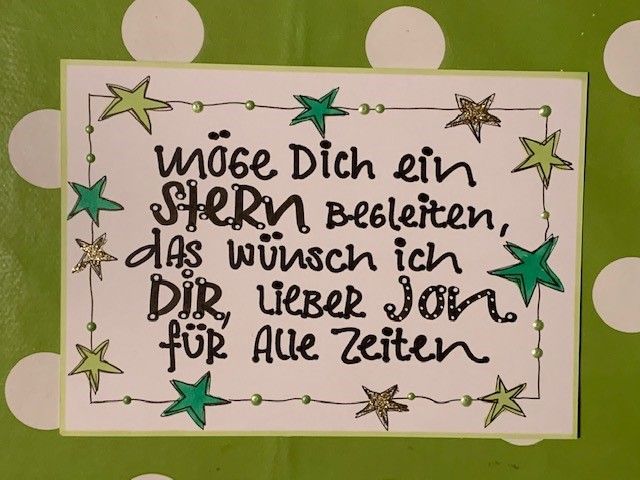 Möge Dich ein
Stern begleiten,
das wünsch ich
Dir, lieber Jon
für alle Zeiten